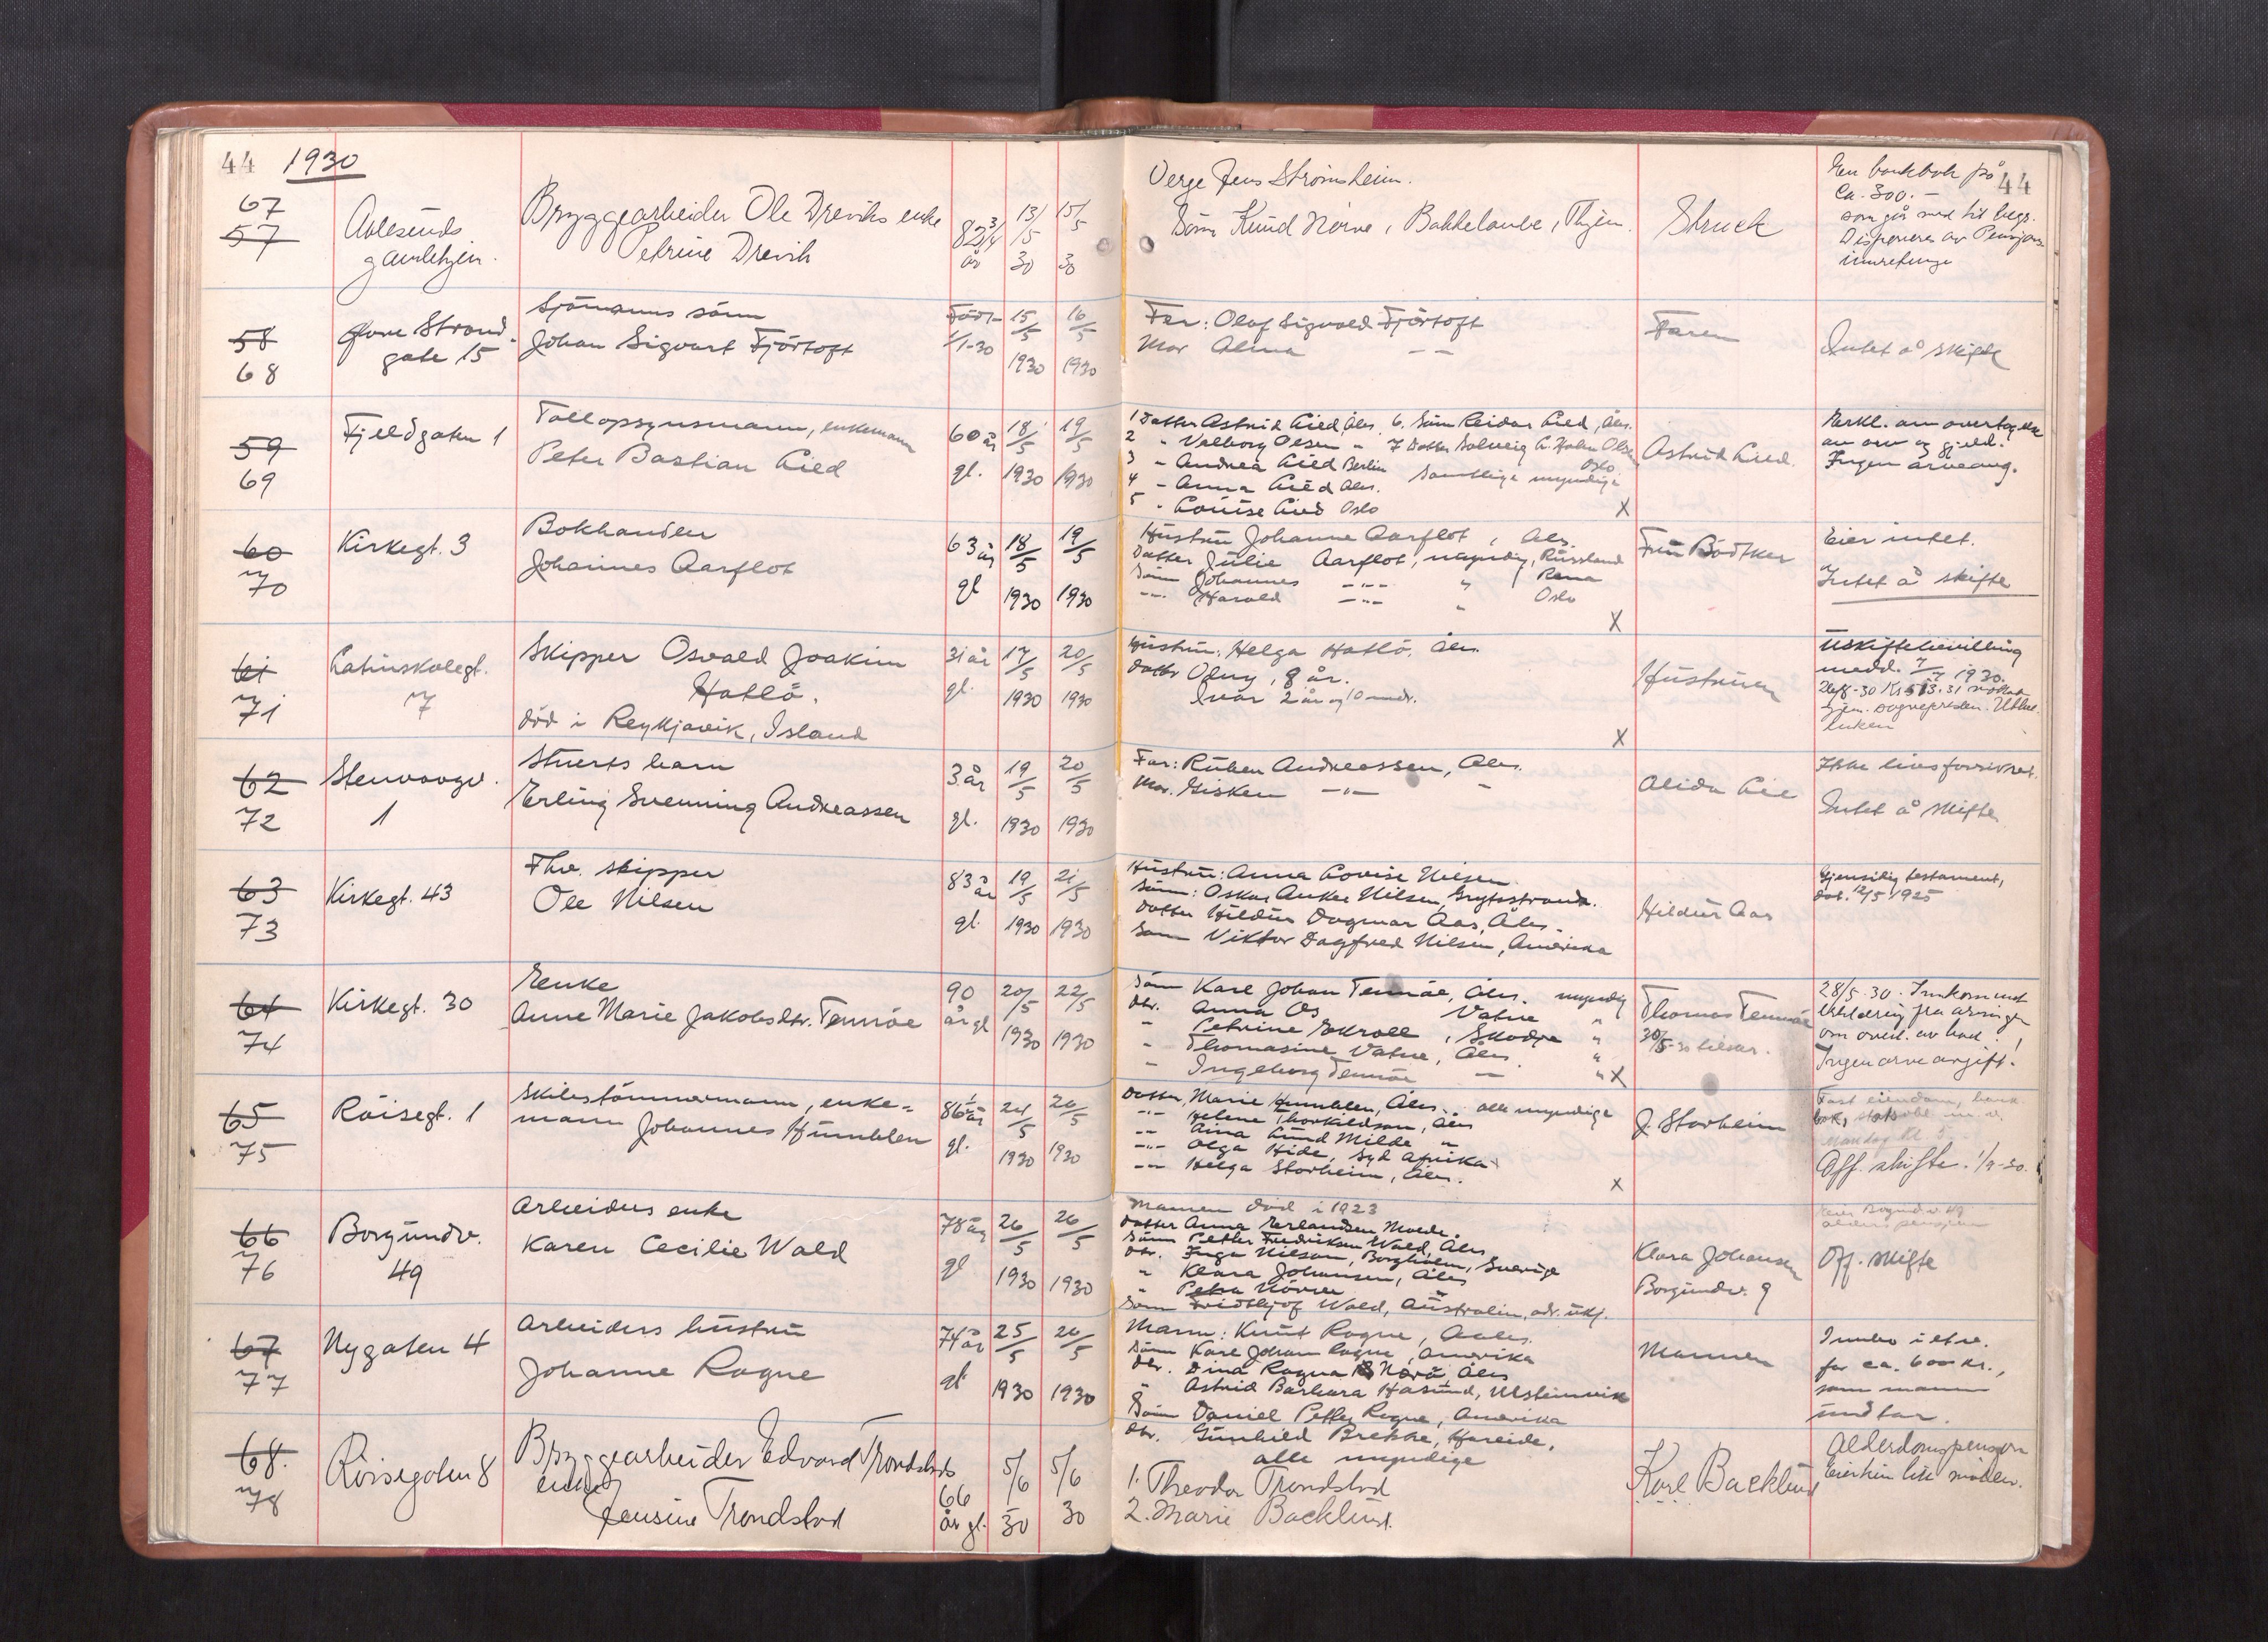 44 1930
67
57
Aalesunds
gamlehjem.
Bryggearbeider Ole Dreviks enke
Petrine Drevik
82 3/4
år
13/5
30
15/5
30
Verge Jens Strømsheim.
Sønn Knud Nørve, Bakkelaube, Thjem.
Struck
En bankbok på
Ca. 300.-
som går med til begr.
Disponeres av Pensjons
44
58
68
Øvre Strand
gate 15
Sjömanns sönn
Johan Sigvart Fjörtoft
Född
1/1-30
15/5
1930
16/5
1930
Far: Olaf Sigvald Fjörtoft
Mor Alma - -
Faren
Intet å skifte
59
69
Fjeldgaten 1
Tollopsynsmann, enkemann
Peter Bastian Lied
60 år
gl.
18/5
1930
19/5
1930
1 Datter Astrid Lied, Ales. 6. Sönn Reidar Lied, Ales.
2 " Valborg Olsen " 7 Datter Solveig L. Holm Olsen
Oslo.
3 " Andrea Lied Berlin
4 " Anna Lied Ales. Samtlige myndige
5 " Louise Lied Oslo X
Astrid Lied.
Erkl. om overtagelse
av arv og gjeld.
Ingen arveavg.
60
70
Kirkegt. 3
Bokhandler
Johannes Aarflot
63 år
gl
18/5
1930
19/5
1930
Hustru Johanne Aarflot, Ales.
Datter Julie Aarflot, myndig, Russland
Sönn Johannes -"- " Rena
-"- Harald -"- " Oslo
X
Fru Bödtker
Eier intet.
Intet å skifte
61
71
Latinskolegt.
7
Skipper Osvald Joakim
Hatlö.
död i Reykjavik, Island
31 år
gl.
17/5
1930
20/5
1930
Hustru, Helga Hatlö. Ales.
Datter Olny, 8 år.
Ivar 2 år og 10 mndr.
X
Hustruen
Uskiftebevilling
medd. 7/7 1930.
62
72
Stenvaagv.
1
Stuerts barn
Erling Svenning Andreassen
3 år
gl.
19/5
1930
20/5
1930
Far: Ruben Andreassen, Ales.
Mor. Gisken -"- -
Alida Lie
Ikke livsforsikret.
Intet å skifte
63
73
Kirkegt. 43
Fhv. skipper
Ole Nilsen
83 år
gl.
19/5
1930
21/5
1930
Hustru: Anna Lovise Nilsen
Sönn: Oskar Anker Nilsen, Grytestranda.
Datter Hildur Dagmar Aas, Ales.
Sønn Viktor Dagfred Nilsen, Amerika
Hildur Aas
Gjensidig testament,
dat. 12/5 1925
64
74
Kirkegt. 30
Enke
Anne Marie Jakobsdtr. Tennöe
90
år gl
20/5
1930
22/5
1930
Sönn Karl Johan Tennöe, Ales. myndig
Dtr. Anna Os Vatne "
" Petrine Ekroll, Skodje "
" Thomasine Vatne, Ales. "
" Ingeborg Tennöe - " X
Thomas Tennöe
30/5-30 tilskr.
28/5-30. Innkommet
Erklæring fra arvinger
om overt. av bod.!
Ingen arveavgift!
65
75
Röisegt. 1
Skibstömmermann, enke=
mann Johannes Humblen
86 1/2 år
gl.
24/5
1930
26/5
1930
Datter, Marie Humblen, Ales. alle myndige
-"- Helene Thorkildsen, Ales
-"- Aina Lund Milde "
-"- Olga Hide, Syd Afrika
-"- Helga Storheim, Ales.
X
J. Storheim
Fast eiendom, bank
bok,
Off. skifte. 1/9-30.
66
76
Borgundv.
49
Arbeiders enke
Karen Cecilie Wold
78 år
gl
26/5
1930
26/5
1930
Mannen död i 1923
Datter Anna Erlandsen Molde.
Sönn Petter Fredriksen Wold, Ales
Dtr. Inga Nilsson, Borgholm, Sverige
" Klara Johansen, Ales
" Petra Nörve "
Sönn Fridthjof Wold, Australia, adr. ukj.
Klara Johansen
Borgundv. 9
Eier Borgundv. 49
alderspensjon
Off. skifte
67
77
Nygaten 4
Arbeiders hustru
Johanne Rogne
74 år
gl
25/5
1930
26/5
1930
Mann: Knut Rogne, Aales.
Sönn Karl Johan Rogne, Amerika
Dtr. Dina Ragna Norö, Ales
" Astrid Barbara Hasund, Ulsteinvik
Sönn Daniel Petter Rogne, Amerika
Dtr. Gunhild Brekke, Hareide,
alle myndige
Mannen
Innbo i etv.
for ca. 600 kr.,
som mannen
inntar.
68.
78
Röisegaten 8
Bryggearbeider Edvard Trondstads
enke
Jensine Trondstad
66
år gl.
5/6
30
5/6
30
1. Theodor Trondstad
2. Marie Backlund.
Karl Backlund
Alderdomspensjon
Eier kun litt möbler.